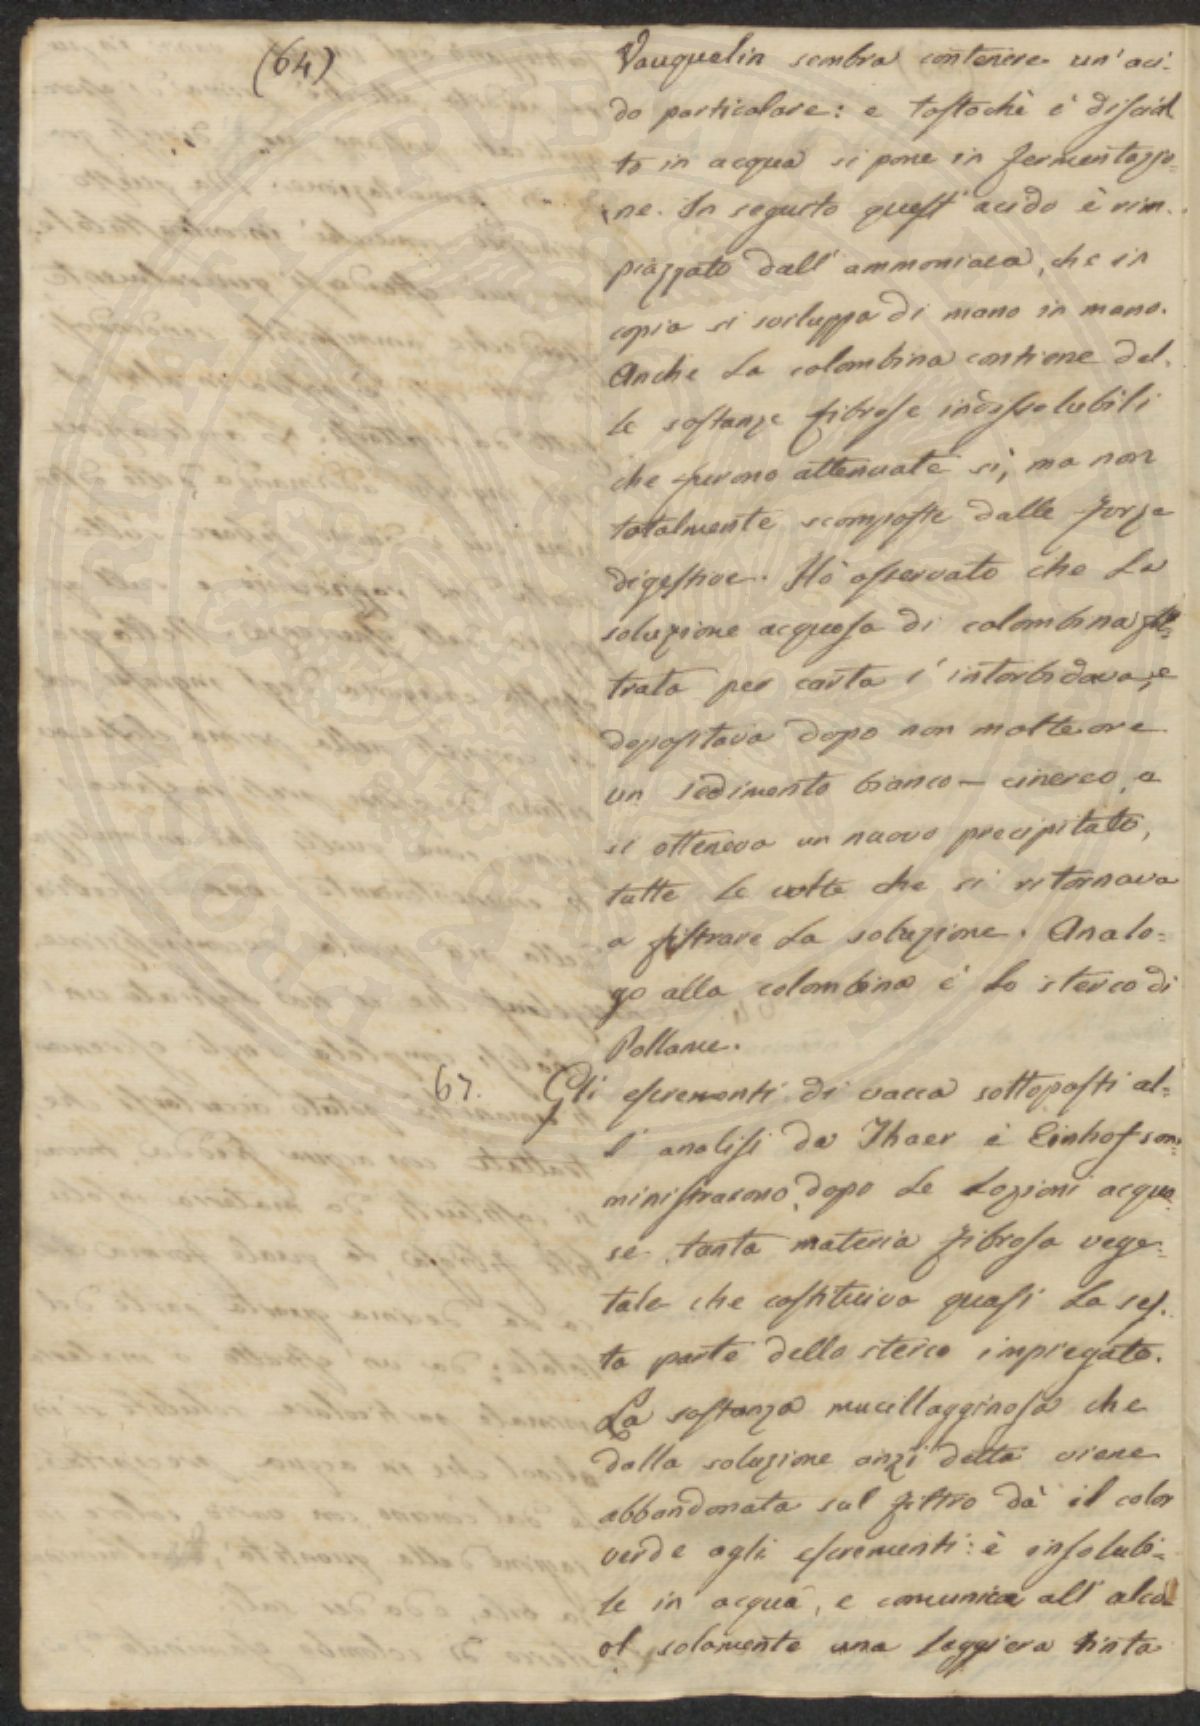 (64)
Vauquelin sembra contenere un' aci-
do particolare: e tostochè è disciol
to in acqua si pone in fermentazio-
ne. In seguito quest' acido è rim-
piazzato dall' ammoniaca, che in
copia si sviluppa di mano in mano.
Anche la colombina contiene del-
le sostanze fibrose indissolubili
che furono attenuate sì, ma non
totalmente scomposte dalle forze
digestive. Hò osservato che la
soluzione acquosa di colombina fil-
trata per carta s' intorbidava, e
depositava dopo non molte ore
un sedimento bianco-cinereo, e
si otteneva un nuovo precipitato,
tutte le volte che si ritornava
a filtrare la soluzione. Analo=
go alla colombina è lo sterco di
Pollame.
67. Gli escrementi di vacca sottoposti al-
l' analisi da Thaer e Einhof som-
ministrarono, dopo le lozioni acquo
se tanta materia fibrosa vege-
tale che costituiva quasi la ses-
ta parte dello sterco impiegato.
La sostanza mucillagginosa che
dalla soluzione anzi detta viene
abbandonata sul filtro dà il color
verde agli escrementi: è insolubi-
le in acqua, e comunica all' alco
ol solamente una leggiera tinta